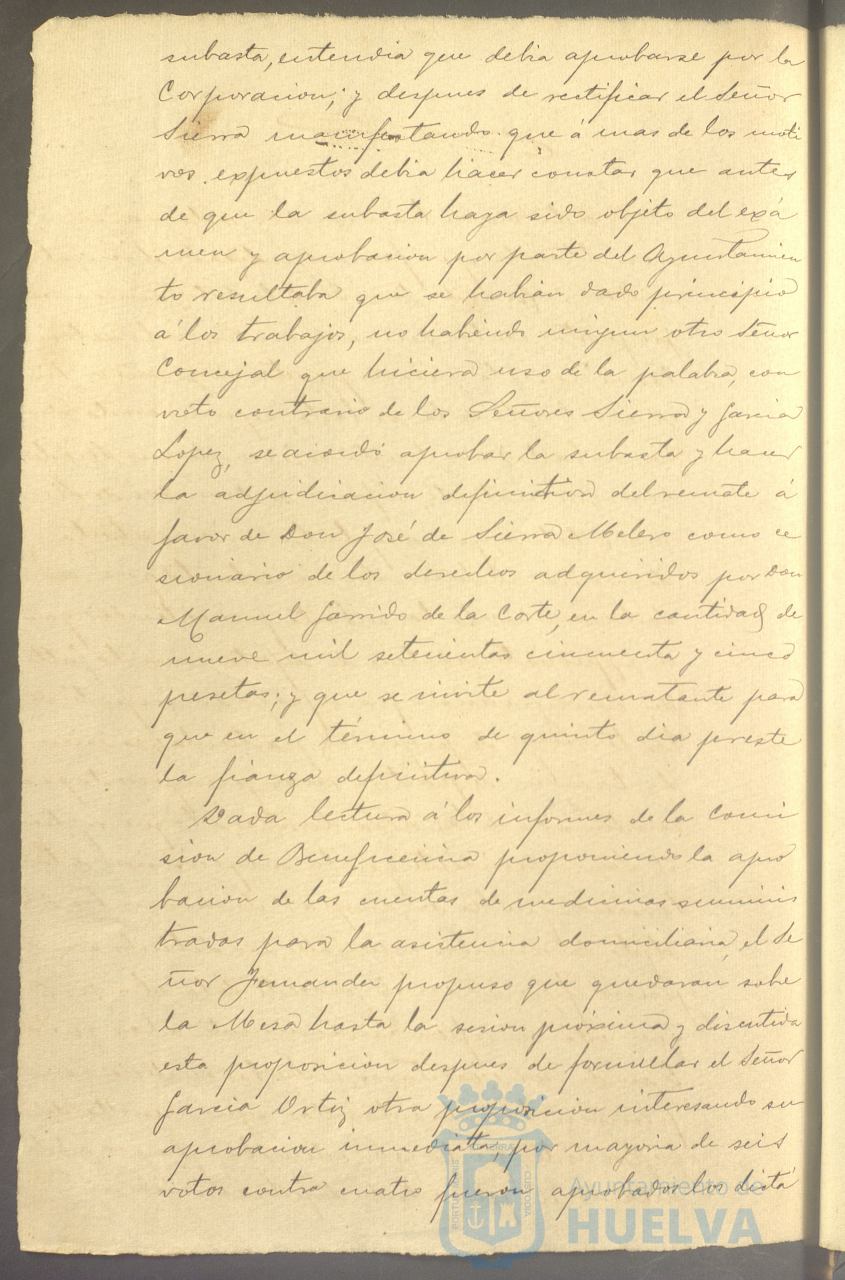 subasta, entendia que debia aprobarse por la
Corporacion; y despues de rectificar el Señor
Sierra manifestando que á mas de los moti
vos expuestos debia hacer constar que antes
de que la subasta haya sido objeto del exá
men y aprobacion por parte del Ayuntamien
to resultaba que se habian dado principio
á los trabajos, no habiendo ningun otro Señor
Concejal que hiciera uso de la palabra, con
voto contrario de los Señores Sierra y Garcia
Lopez, se acordó aprobar la subasta y hacer
la adjudicacion definitiva del remate á
favor de Don José de Sierra Melero como ce
sionario de los derechos adquiridos por Don
Manuel Garrido de la Corte, en la cantidad de
nueve mil setecientas cincuenta y cinco
pesetas; y que se invite al rematante para
que en el término de quinto dia preste
la fianza definitiva.
Dada lectura á los informes de la Comi
sion de Beneficencia proponiendo la apro
bacion de las cuentas de medicinas suminis
tradas para la asistencia domiciliaria, el Se
ñor Fernandez propuso que quedaran sobre
la Mesa hasta la sesion próxima y discutida
esta proposicion despues de formular el Señor
Garcia Ortiz otra proposicion interesando su
aprobacion inmediata, por mayoria de seis
votos contra cuatro fueron aprobados los dictá
Ayuntamiento de
HUELVA